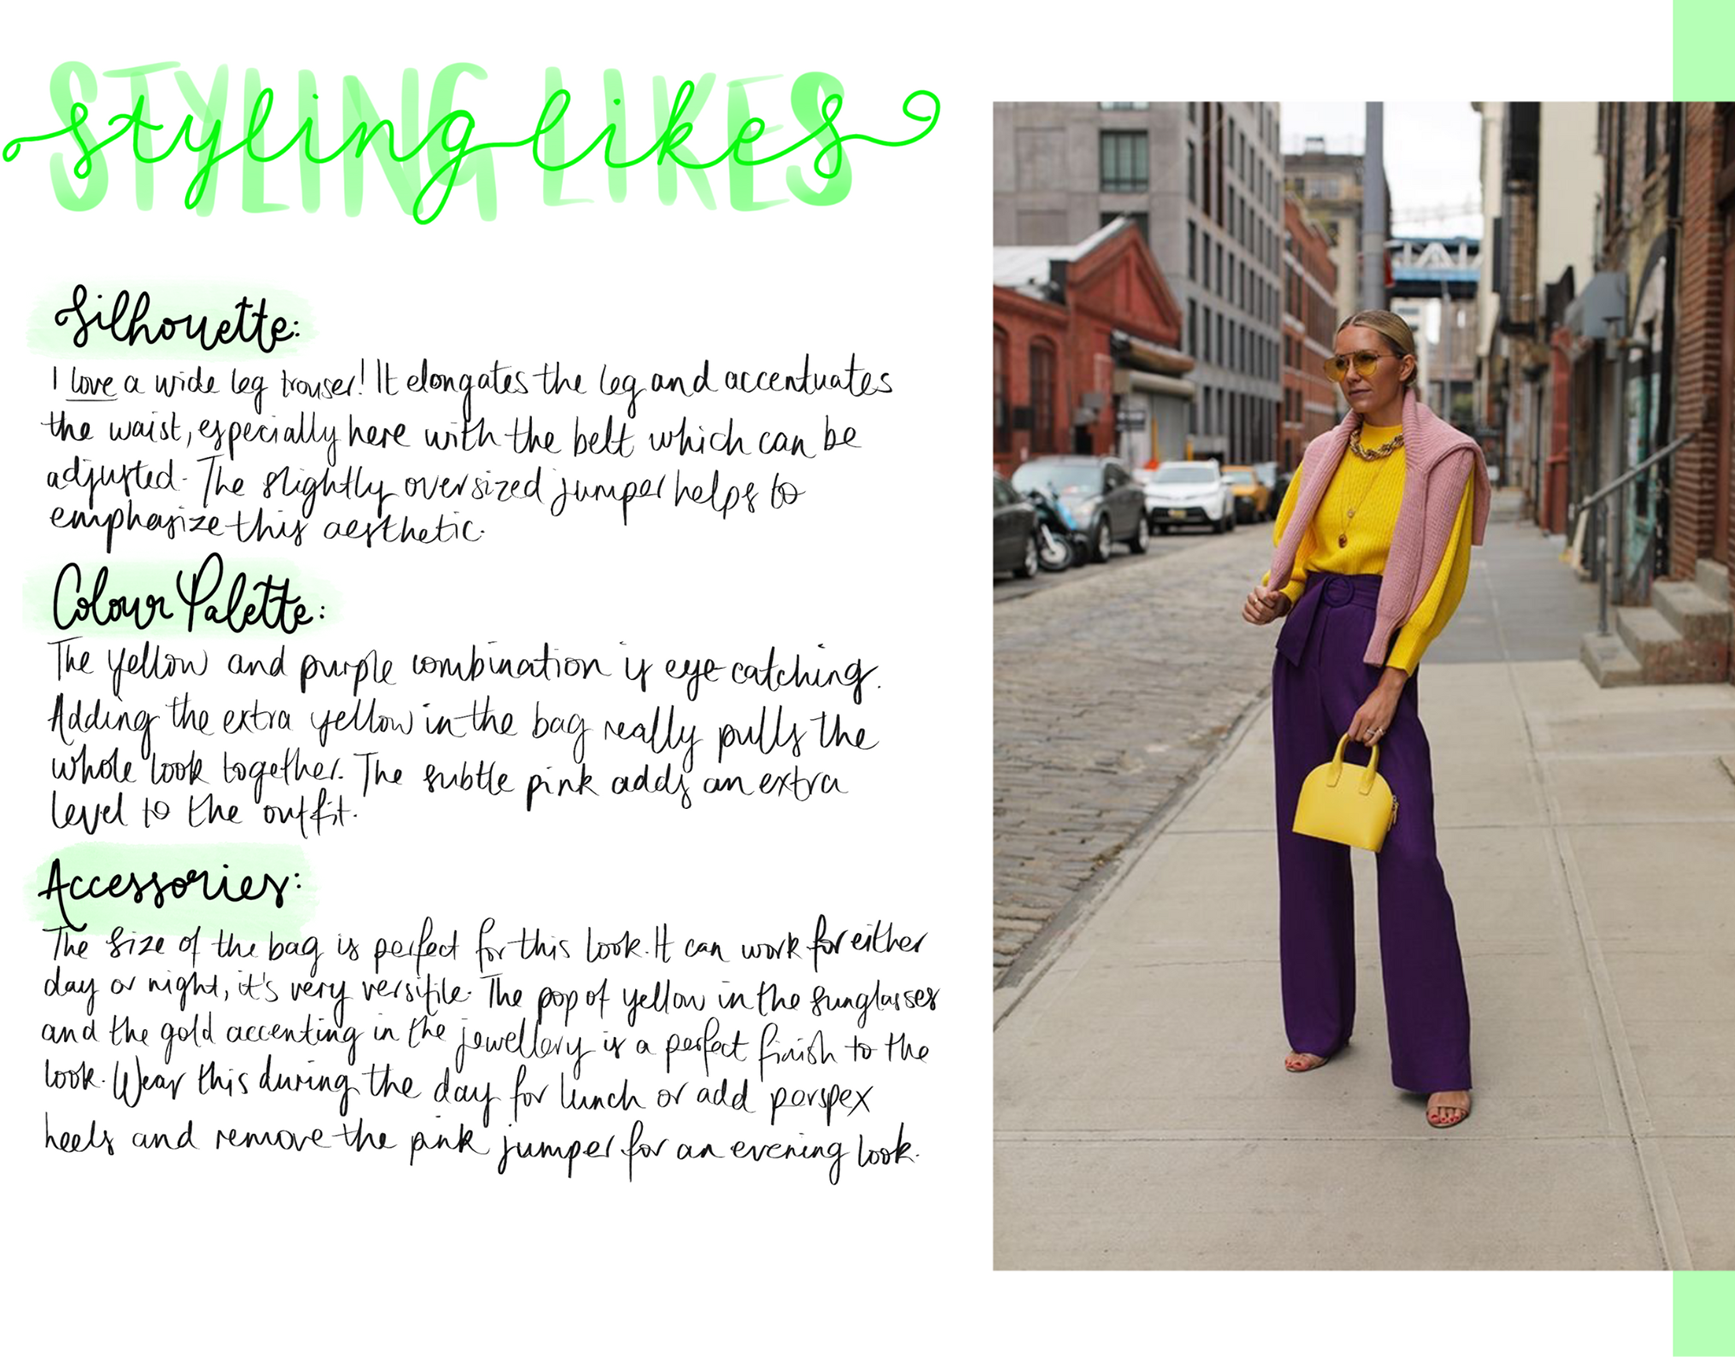 STYLING LIKES
styling likes
Silhouette:
I love a wide leg trouser! It elongates the leg and accentuates
the waist, especially here with the belt which can be
adjusted. The slightly oversized jumper helps to
emphasize this aesthetic.
Colour Palette:
The yellow and purple combination is eye catching.
Adding the extra yellow in the bag really pulls the
whole look together. The subtle pink adds an extra
level to the outfit.
Accessories:
The size of the bag is perfect for this look. It can work for either
day or night, it's very versitile. The pop of yellow in the sunglasses
and the gold accenting in the jewellery is a perfect finish to the
look. Wear this during the day for lunch or add perspex
heels and remove the pink jumper for an evening look.